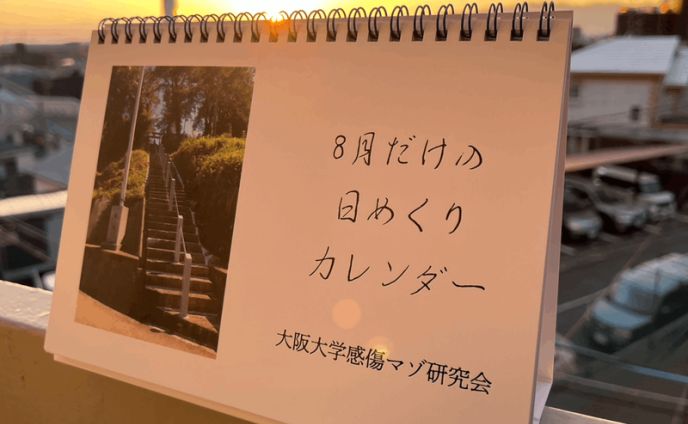 8月だけの
日めくり
カレンダー
大阪大学感傷マゾ研究会